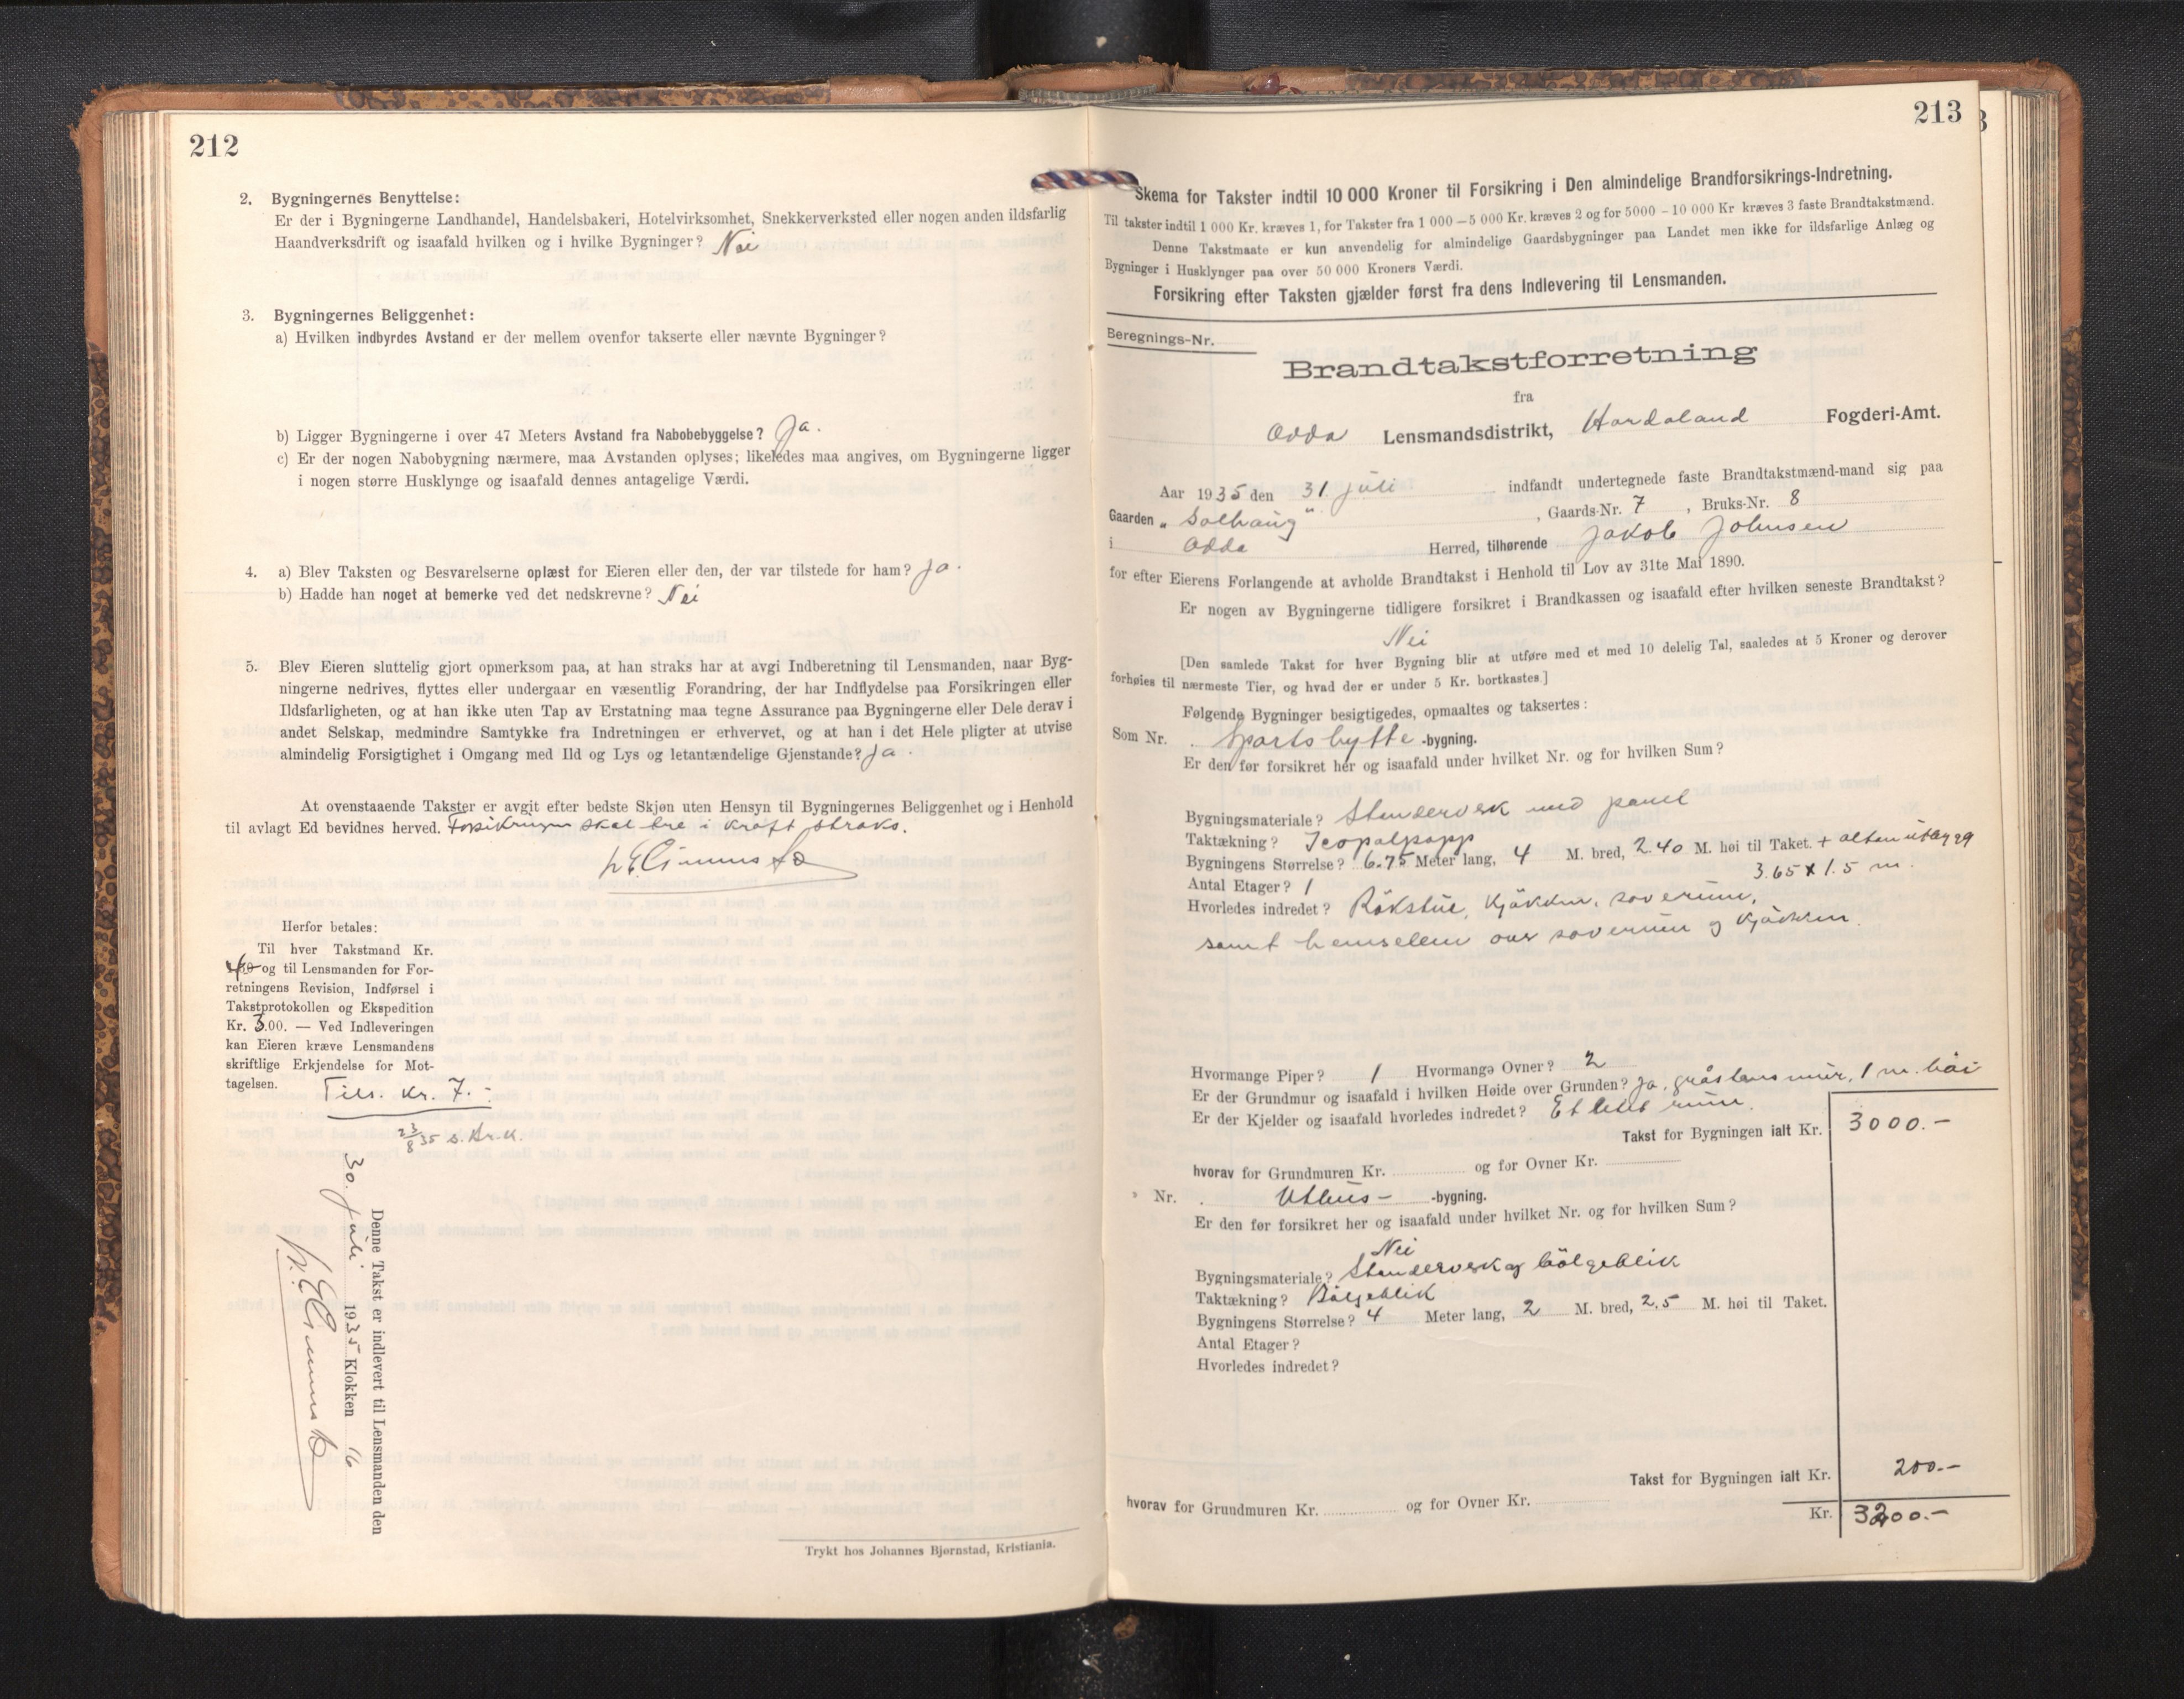 212
2. Bygningernes Benyttelse:
Er der i Bygningerne Landhandel, Handelsbakeri, Hotelvirksomhet, Snekkerverksted eller nogen anden ildsfarlig
Haandverksdrift og isaafald hvilken og i hvilke Bygninger? Nei
3. Bygningernes Beliggenhet:
a) Hvilken indbyrdes Avstand er der mellem ovenfor takserte eller nævnte Bygninger?
b) Ligger Bygningerne i over 47 Meters Avstand fra Nabobebyggelse? Ja.
c) Er der nogen Nabobygning nærmere, maa Avstanden oplyses; likeledes maa angives, om Bygningerne ligger
i nogen større Husklynge og isaafald dennes antagelige Værdi.
4. a) Blev Taksten og Besvarelserne oplæst for Eieren eller den, der var tilstede for ham? Ja.
b) Hadde han noget at bemerke ved det nedskrevne? Nei
5. Blev Eieren sluttelig gjort opmerksom paa, at han straks har at avgi Indberetning til Lensmanden, naar Byg-
ningerne nedrives, flyttes eller undergaar en væsentlig Forandring, der har Indflydelse paa Forsikringen eller
Ildsfarligheten, og at han ikke uten Tap av Erstatning maa tegne Assurance paa Bygningerne eller Dele derav i
andet Selskap, medmindre Samtykke fra Indretningen er erhvervet, og at han i det Hele pligter at utvise
almindelig Forsigtighet i Omgang med Ild og Lys og letantændelige Gjenstande? Ja.
At ovenstaaende Takster er avgit efter bedste Skjøn uten Hensyn til Bygningernes Beliggenhet og i Henhold
til avlagt Ed bevidnes herved. Forsikringen skal tre i kraft straks.
Herfor betales:
Til hver Takstmand Kr.
4 og til Lensmanden for For-
retningens Revision, Indførsel i
Takstprotokollen og Ekspedition
Kr. 3.00. — Ved Indleveringen
kan Eieren kræve Lensmandens
skriftlige Erkjendelse for Mot-
tagelsen.
Tils. Kr. 7.-
23/8 35 s. Br.k.
Denne Takst er indlevert til Lensmanden den
30. juli 1935 Klokken 16
Trykt hos Johannes Bjørnstad, Kristiania.
213
Skema for Takster indtil 10 000 Kroner til Forsikring i Den almindelige Brandforsikrings-Indretning.
Til takster indtil 1 000 Kr. kræves 1, for Takster fra 1 000—5 000 Kr. kræves 2 og for 5000—10 000 Kr kræves 3 faste Brandtakstmænd.
Denne Takstmaate er kun anvendelig for almindelige Gaardsbygninger paa Landet men ikke for ildsfarlige Anlæg og
Bygninger i Husklynger paa over 50 000 Kroners Værdi.
Forsikring efter Taksten gjælder først fra dens Indlevering til Lensmanden.
Beregnings-Nr.
Brandtakstforretning
fra
Odda Lensmandsdistrikt, Hordaland Fogderi-Amt.
Aar 1935 den 31 juli indfandt undertegnede faste Brandtakstmænd-mand sig paa
Gaarden „ Solhaug " , Gaards-Nr. 7 , Bruks-Nr. 8
i Odda Herred, tilhørende Jakob Johnsen
for efter Eierens Forlangende at avholde Brandtakst i Henhold til Lov av 31te Mai 1890.
Er nogen av Bygningerne tidligere forsikret i Brandkassen og isaafald efter hvilken seneste Brandtakst?
Nei
[Den samlede Takst for hver Bygning blir at utføre med et med 10 delelig Tal, saaledes at 5 Kroner og derover
forhøies til nærmeste Tier, og hvad der er under 5 Kr. bortkastes.]
Følgende Bygninger besigtigedes, opmaaltes og taksertes:
Som Nr. . Sportshytte -bygning.
Er den før forsikret her og isaafald under hvilket Nr. og for hvilken Sum?
Bygningsmateriale? Stenderverk med panel
Taktækning? Icopalpapp
Bygningens Størrelse? 6.75 Meter lang, 4 M. bred, 2.40 M. høi til Taket. + altanutbygg
3.65 x 1.5 m.
Antal Etager? 1
Hvorledes indredet? Rökstue, kjökken, soverum,
samt hemselem over soverum og kjökken.
Hvormange Piper? 1 Hvormange Ovner? 2
Er der Grundmur og isaafald i hvilken Høide over Grunden? Ja, gråstensmur, 1 m. höi
Er der Kjelder og isaafald hvorledes indredet? Et litet rum.
Takst for Bygningen ialt Kr. 3000.-
hvorav for Grundmuren Kr. og for Ovner Kr.
" Nr. . Uthus- -bygning.
Er den før forsikret her og isaafald under hvilket Nr. og for hvilken Sum?
Nei
Bygningsmateriale? Stenderverk og bölgeblik
Taktækning? Bölgeblik
Bygningens Størrelse? 4 Meter lang, 2 M. bred, 2,5 M. høi til Taket.
Antal Etager?
Hvorledes indredet?
Takst for Bygningen ialt Kr. 200.-
hvorav for Grundmuren Kr. og for Ovner Kr.
Kr. 3200.-